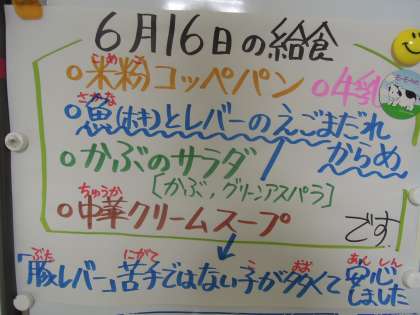 6月16日の給食
こめこ
○米粉コッペパン ○牛乳
さかな
○魚(ほき)とレバーのえごまだれ
からめ
○かぶのサラダ
[かぶ,グリーンアスパラ]
ちゅうか
○中華クリームスープ
です
ぶた にがて おお あん しん
「豚レバー」苦手ではない子が多くて安心
しました